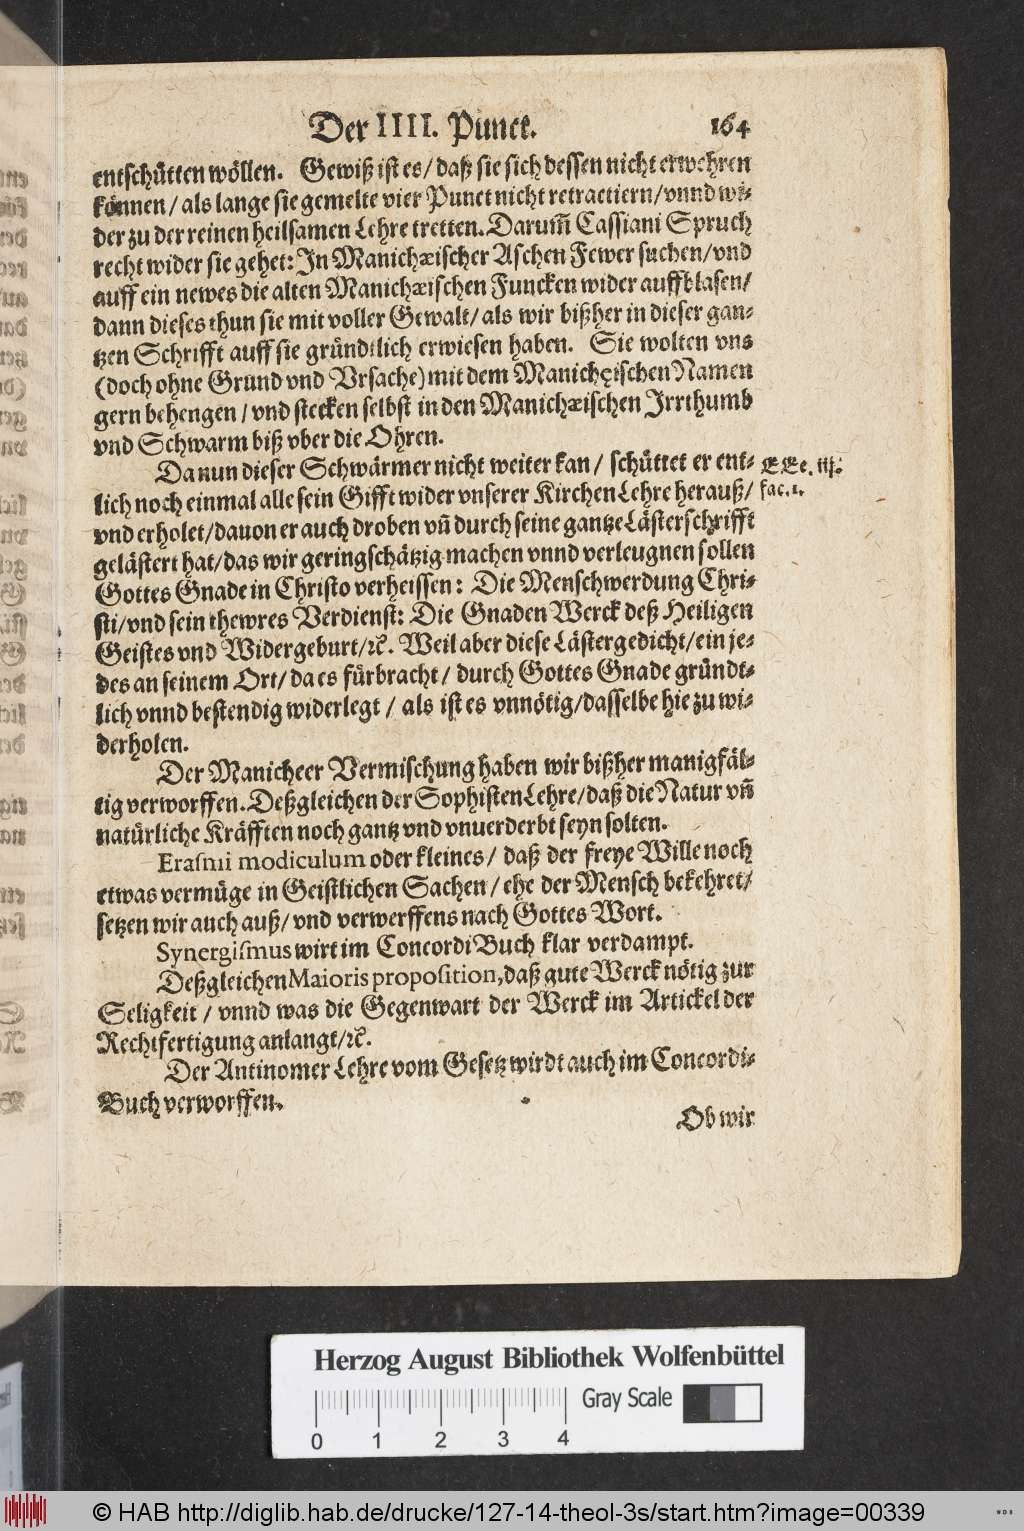 Der IIII. Punct. 164
entschütten wöllen. Gewiß ist es/ daß sie sich dessen nicht erwehren
können/ als lange sie gemelte vier Punct nicht retractiern/ vnnd wi-
der zu der reinen heilsamen Lehre tretten. Darum̃ Cassiani Spruch
recht wider sie gehet: In Manichæischer Aschen Fewer suchen/ vnd
auff ein newes die alten Manichæischen Funcken wider auffblasen/
dann dieses thun sie mit voller Gewalt/ als wir bißher in dieser gan-
tzen Schrifft auff sie gründtlich erwiesen haben. Sie wolten vns
(doch ohne Grund vnd Vrsache) mit dem Manichęischen Namen
gern behengen/ vnd stecken selbst in den Manichæischen Irrthumb
vnd Schwarm biß vber die Ohren.
Da nun dieser Schwärmer nicht weiter kan/ schüttet er ent-
EEe. iij.
lich noch einmal alle sein Gifft wider vnserer Kirchen Lehre herauß/
fac. 1.
vnd erholet/ dauon er auch droben vñ durch seine gantze Lästerschrifft
gelästert hat/ das wir geringschätzig machen vnnd verleugnen sollen
Gottes Gnade in Christo verheissen: Die Menschwerdung Chri-
sti/ vnd sein thewres Verdienst: Die Gnaden Werck deß Heiligen
Geistes vnd Widergeburt/ ꝛc. Weil aber diese Lästergedicht/ ein je-
des an seinem Ort/ da es fürbracht/ durch Gottes Gnade gründt-
lich vnnd bestendig widerlegt/ als ist es vnnötig/ dasselbe hie zu wi-
derholen.
Der Manicheer Vermischung haben wir bißher manigfäl-
tig verworffen. Deßgleichen der Sophisten Lehre/ daß die Natur vñ
natürliche Kräfften noch gantz vnd vnuerderbt seyn solten.
Eraſmi modiculum oder kleines/ daß der freye Wille noch
etwas vermüge in Geistlichen Sachen/ ehe der Mensch bekehret/
setzen wir auch auß/ vnd verwerffens nach Gottes Wort.
Synergiſmus wirt im ConcordiBuch klar verdampt.
Deßgleichen Maioris propoſition, daß gute Werck nötig zur
Seligkeit/ vnnd was die Gegenwart der Werck im Artickel der
Rechtfertigung anlangt/ ꝛc.
Der Antinomer Lehre vom Gesetz wirdt auch im Concordi-
Buch verworffen.
Ob wir
Herzog August Bibliothek Wolfenbüttel
Gray Scale
0 1 2 3 4
© HAB http://diglib.hab.de/drucke/127-14-theol-3s/start.htm?image=00339